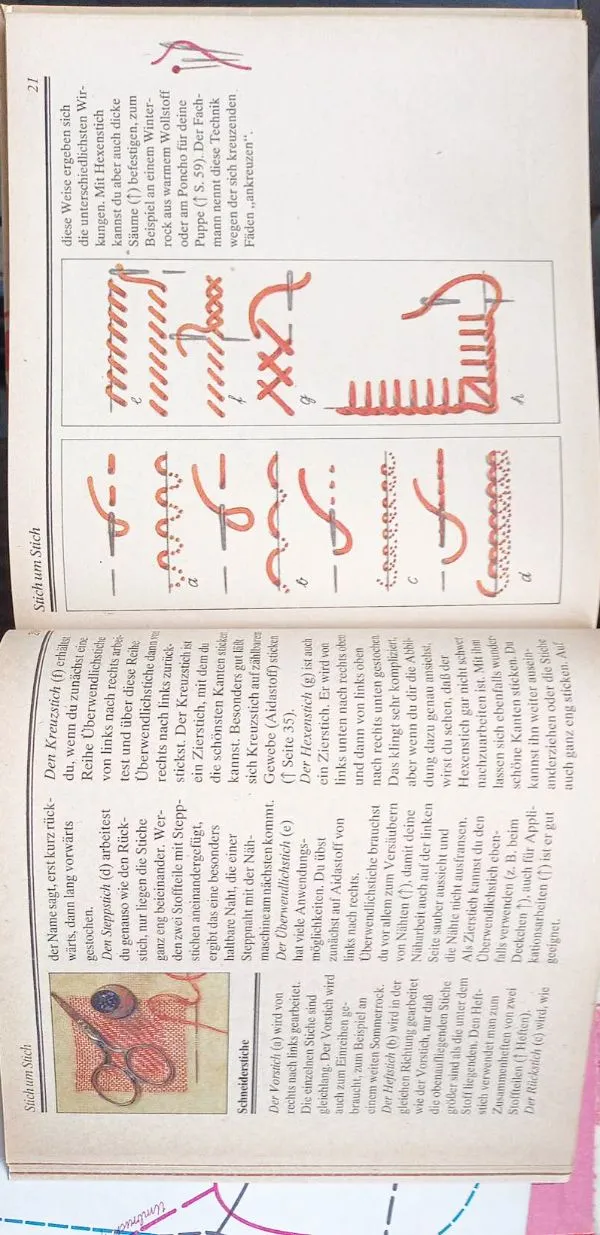 Stich um Stich
Schneiderstiche
Der Vorstich (a) wird von
rechts nach links gearbeitet.
Die einzelnen Stiche sind
gleichlang. Der Vorstich wird
auch zum Einreihen ge-
braucht, zum Beispiel an
einem weiten Sommerrock.
Der Heftstich (b) wird in der
gleichen Richtung gearbeitet
wie der Vorstich, nur daß
die obenaufliegenden Stiche
größer sind als die unter dem
Stoff liegenden. Den Heft-
stich verwendet man zum
Zusammenheften von zwei
Stoffteilen (↑ Heften).
Der Rückstich (c) wird, wie
der Name sagt, erst kurz rück-
wärts, dann lang vorwärts
gestochen.
Den Steppstich (d) arbeitest
du genauso wie den Rück-
stich, nur liegen die Stiche
ganz eng beieinander. Wer-
den zwei Stoffteile mit Stepp-
stichen aneinandergefügt,
ergibt das eine besonders
haltbare Naht, die einer
Steppnaht mit der Näh-
maschine am nächsten kommt.
Der Überwendlichstich (e)
hat viele Anwendungs-
möglichkeiten. Du übst
zunächst auf Aidastoff von
links nach rechts.
Überwendlichstiche brauchst
du vor allem zum Versäubern
von Nähten (↑), damit deine
Näharbeit auch auf der linken
Seite sauber aussieht und
die Nähte nicht ausfransen.
Als Zierstich kannst du den
Überwendlichstich eben-
falls verwenden (z. B. beim
Deckchen ↑), auch für Appli-
kationsarbeiten (↑) ist er gut
geeignet.
Den Kreuzstich (f) erhältst
du, wenn du zunächst eine
Reihe Überwendlichstiche
von links nach rechts arbei-
test und über diese Reihe
Überwendlichstiche dann von
rechts nach links zurück-
stickst. Der Kreuzstich ist
ein Zierstich, mit dem du
die schönsten Kanten sticken
kannst. Besonders gut läßt
sich Kreuzstich auf zählbarem
Gewebe (Aidastoff) sticken
(↑ Seite 35).
Der Hexenstich (g) ist auch
ein Zierstich. Er wird von
links unten nach rechts oben
und dann von links oben
nach rechts unten gestochen.
Das klingt sehr kompliziert,
aber wenn du dir die Abbil-
dung dazu genau ansiehst,
wirst du sehen, daß der
Hexenstich gar nicht schwer
nachzuarbeiten ist. Mit ihm
lassen sich ebenfalls wunder-
schöne Kanten sticken. Du
kannst ihn weiter ausein-
anderziehen oder die Stiche
auch ganz eng sticken. Auf
Stich um Stich
21
a
b
c
d
e
f
g
h
diese Weise ergeben sich
die unterschiedlichsten Wir-
kungen. Mit Hexenstich
kannst du aber auch dicke
Säume (↑) befestigen, zum
Beispiel an einem Winter-
rock aus warmem Wollstoff
oder am Poncho für deine
Puppe (↑ S. 59). Der Fach-
mann nennt diese Technik
wegen der sich kreuzenden
Fäden „ankreuzen“.